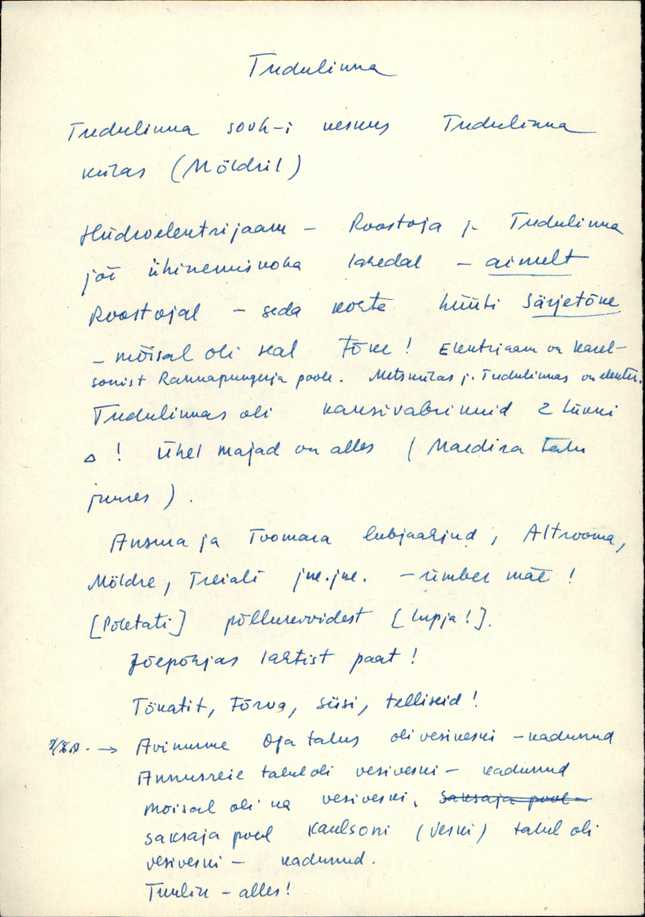 Tudulinna
Tudulinna sovh-i keskus Tudulinna
külas (Möldril)
Hüdroelektrijaam – Roostoja j. Tudulinna
jõe ühinemiskoha lähedal – ainult
Roostojal – seda kohta hüüti Särjetõke
– mõisal oli seal tõke! Elektrijaam on Karl-
sonist Rannapungerja poole. Metskülas j. Tudulinnas on elektr.
Tudulinnas oli klaasivabrikuid 2 tükki
! Ühel majad on alles (Mardika talu
juures).
Ansma ja Toomara lubjaahjud, Altrooma,
Möldre, Treiali jne. jne. – ümber mäe!
[Põletati] põllukividest [lupja!].
Jõepõhjas lahtist paat!
Tökatit, tõrva, süsi, telliseid!
→ Avinurme Oja talus oli vesiveski – kadunud
Annusreie talul oli vesiveski – kadunud
mõisal oli ka vesiveski. Saksaja pool –
saksaja pool Karlsoni (Veski) talul oli
vesiveski – kadunud.
Tuulik – alles!